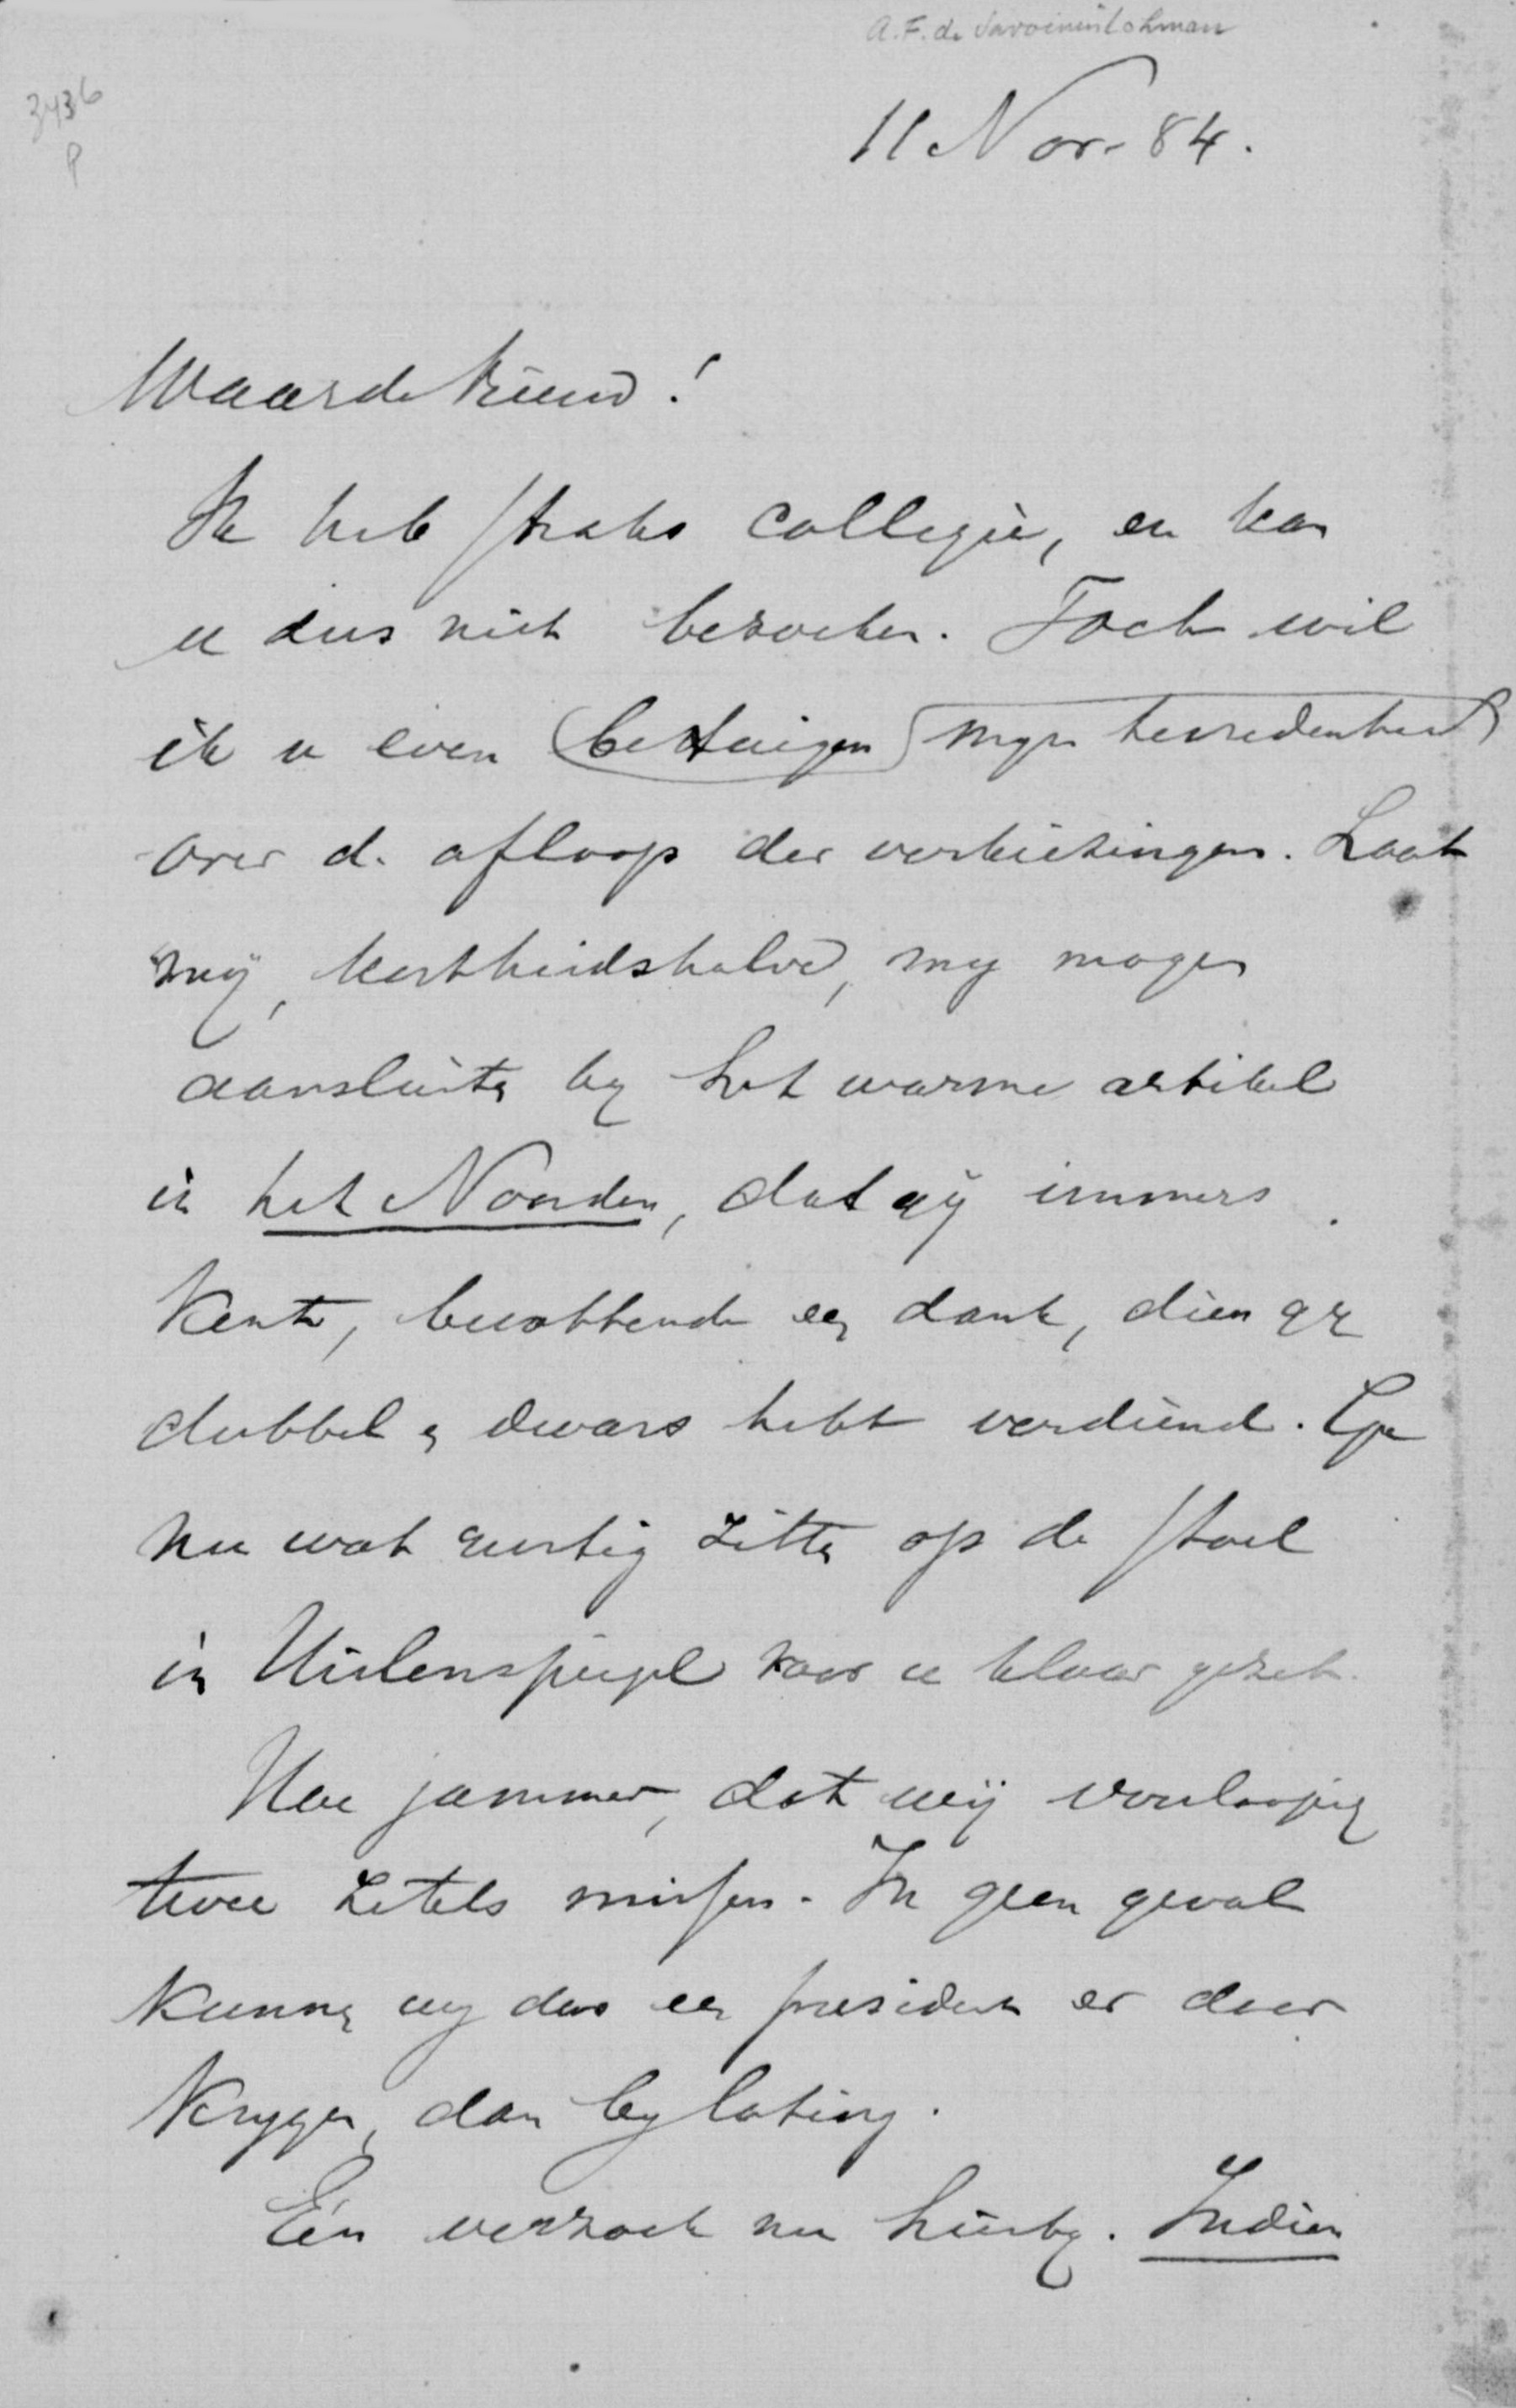 A.F. de Savornin Lohman
3436
P
11 Nov. 84.
Waarde Vriend!
Ik heb straks collegie, en kan
u dus niet bezoeken. Toch wil
ik u even betuigen mijn tevredenheid
over de afloop der verkiezingen. Laat
mij, kortheidshalve, my mogen
aansluiten by het warme artikel
in het Noorden, dat gij immers
kent, bevattende een dank, dien gy
dubbel en dwars hebt verdiend. Ga
nu wat rustig zitten op de stoel
in Uilenspiegel voor u klaar gezet.
Hoe jammer, dat wij voorloopig
twee zetels missen. In geen geval
kunnen wy dus een president er door
krygen, dan by loting.
Eén verzoek nu hierby. Indien